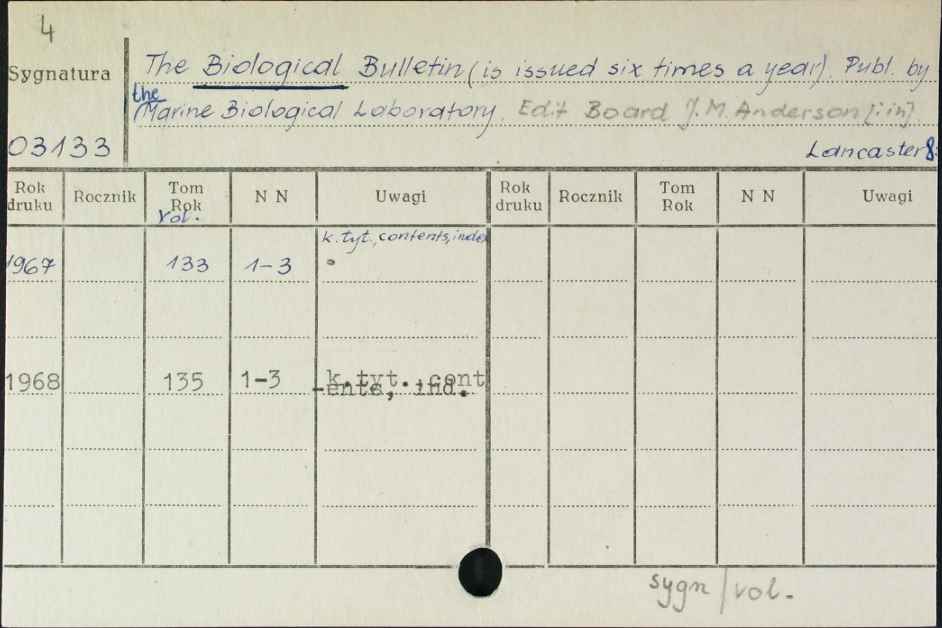 4
Sygnatura
The Biological Bulletin (is issued six times a year). Publ. by
the
Marine Biological Laboratory. Edit Board J.M. Anderson [i in].
03133
Lancaster
Rok druku Rocznik Tom Rok N N Uwagi Rok druku Rocznik Tom Rok N N Uwagi
Vol.
k. tyt., contents, index
1967 133 1-3
1968 135 1-3 k.tyt., cont
-ents, ind.
sygn/vol.